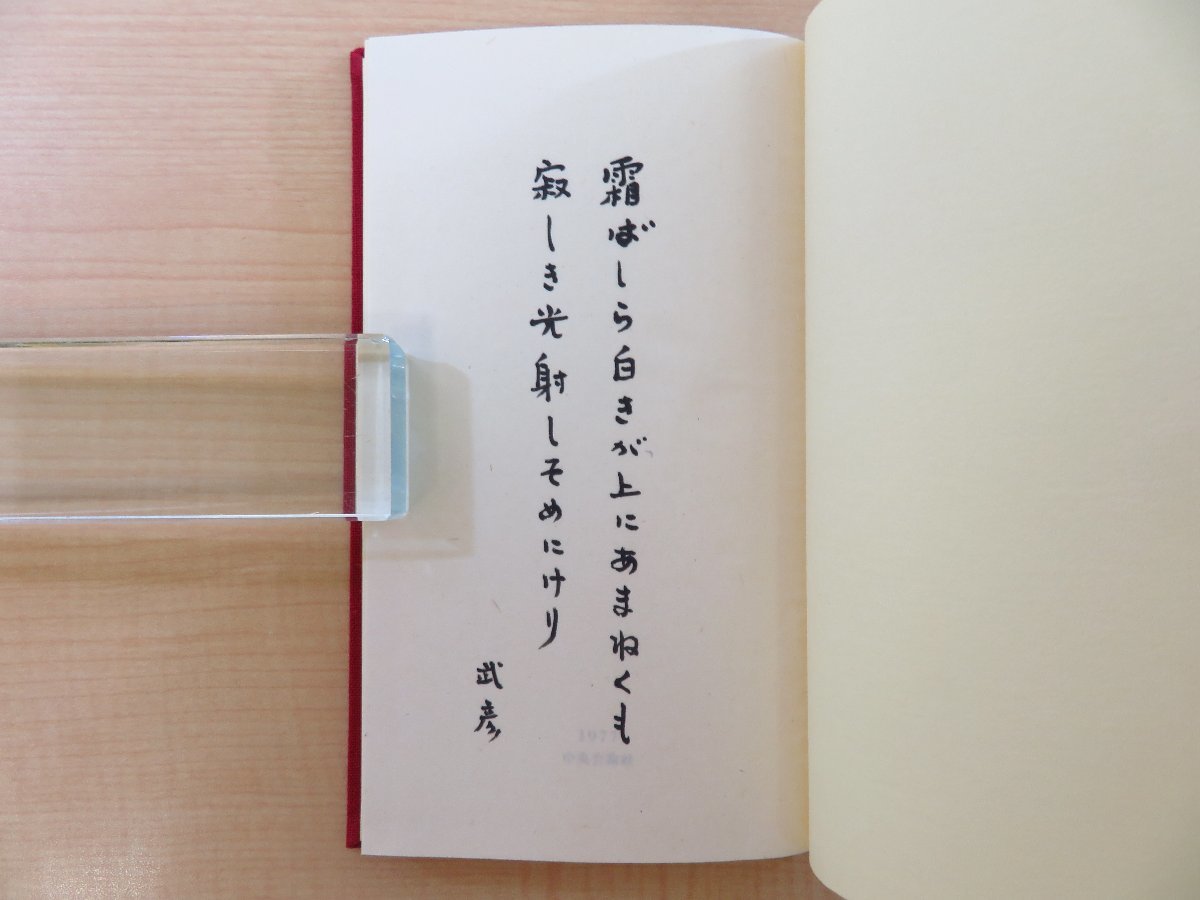 霜ばしら白きが上にあまねくも
寂しき光射しそめにけり
武彦
1977
中央公論社